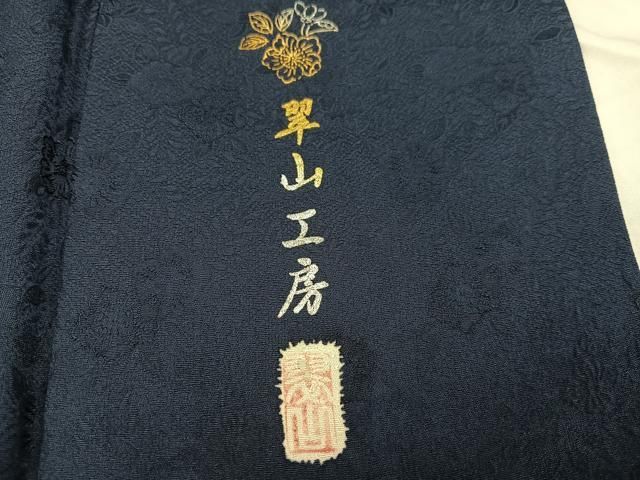 翠山工房